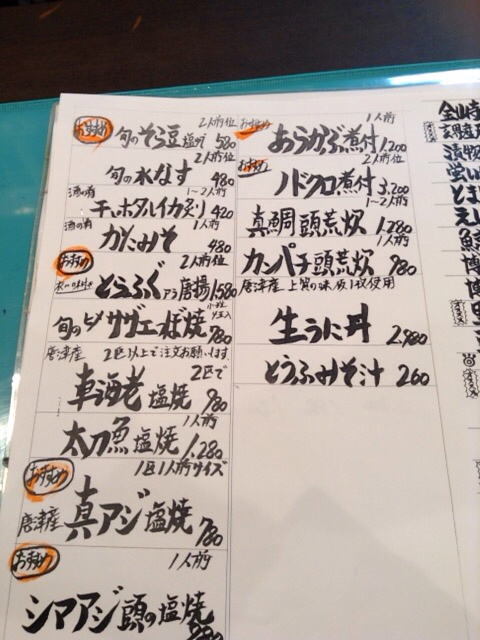 おすすめ 2人前位
旬のそら豆 塩ゆで 580
2人前位
旬の水なす 480
酒の肴 1~2人前
干しホタルイカ炙り 420
酒の肴 1人前
かにみそ 480
おすすめ 2人前位
とらふぐ 唐揚 1,580
旬の ヒメサザエつぼ焼 780
唐津産 2匹以上で注文お願いします
2匹で
車海老 塩焼 780
1人前
太刀魚 塩焼 1,280
おすすめ 1匹1人前サイズ
唐津産 真アジ 塩焼 780
おすすめ 1人前
シマアジ頭の塩焼
おすすめ 1人前
あらかぶ煮付 1,200
おすすめ 2人前位
ノドクロ煮付 3,200
1~2人前
真鯛 頭荒炊 1,280
1人前
カンパチ頭荒炊 780
唐津産 上質の 1枚使用
生うに丼 2,980
とうふみそ汁 260
金山寺
漬物